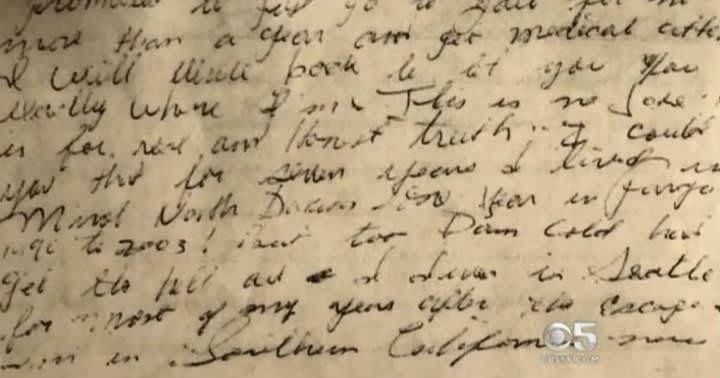 promised to first go to jail for no
more than a year and get medical
I Will Write back to let you
exactly where I am This is no Joke
is for real and Honest truth I could
you tht for seven years I lived in
Minot North Dakota Year in Fargo
to 2003! but too Damn Cold had
get the hell out I in Seattle
for most of my years after the escape
in Southern California now
5